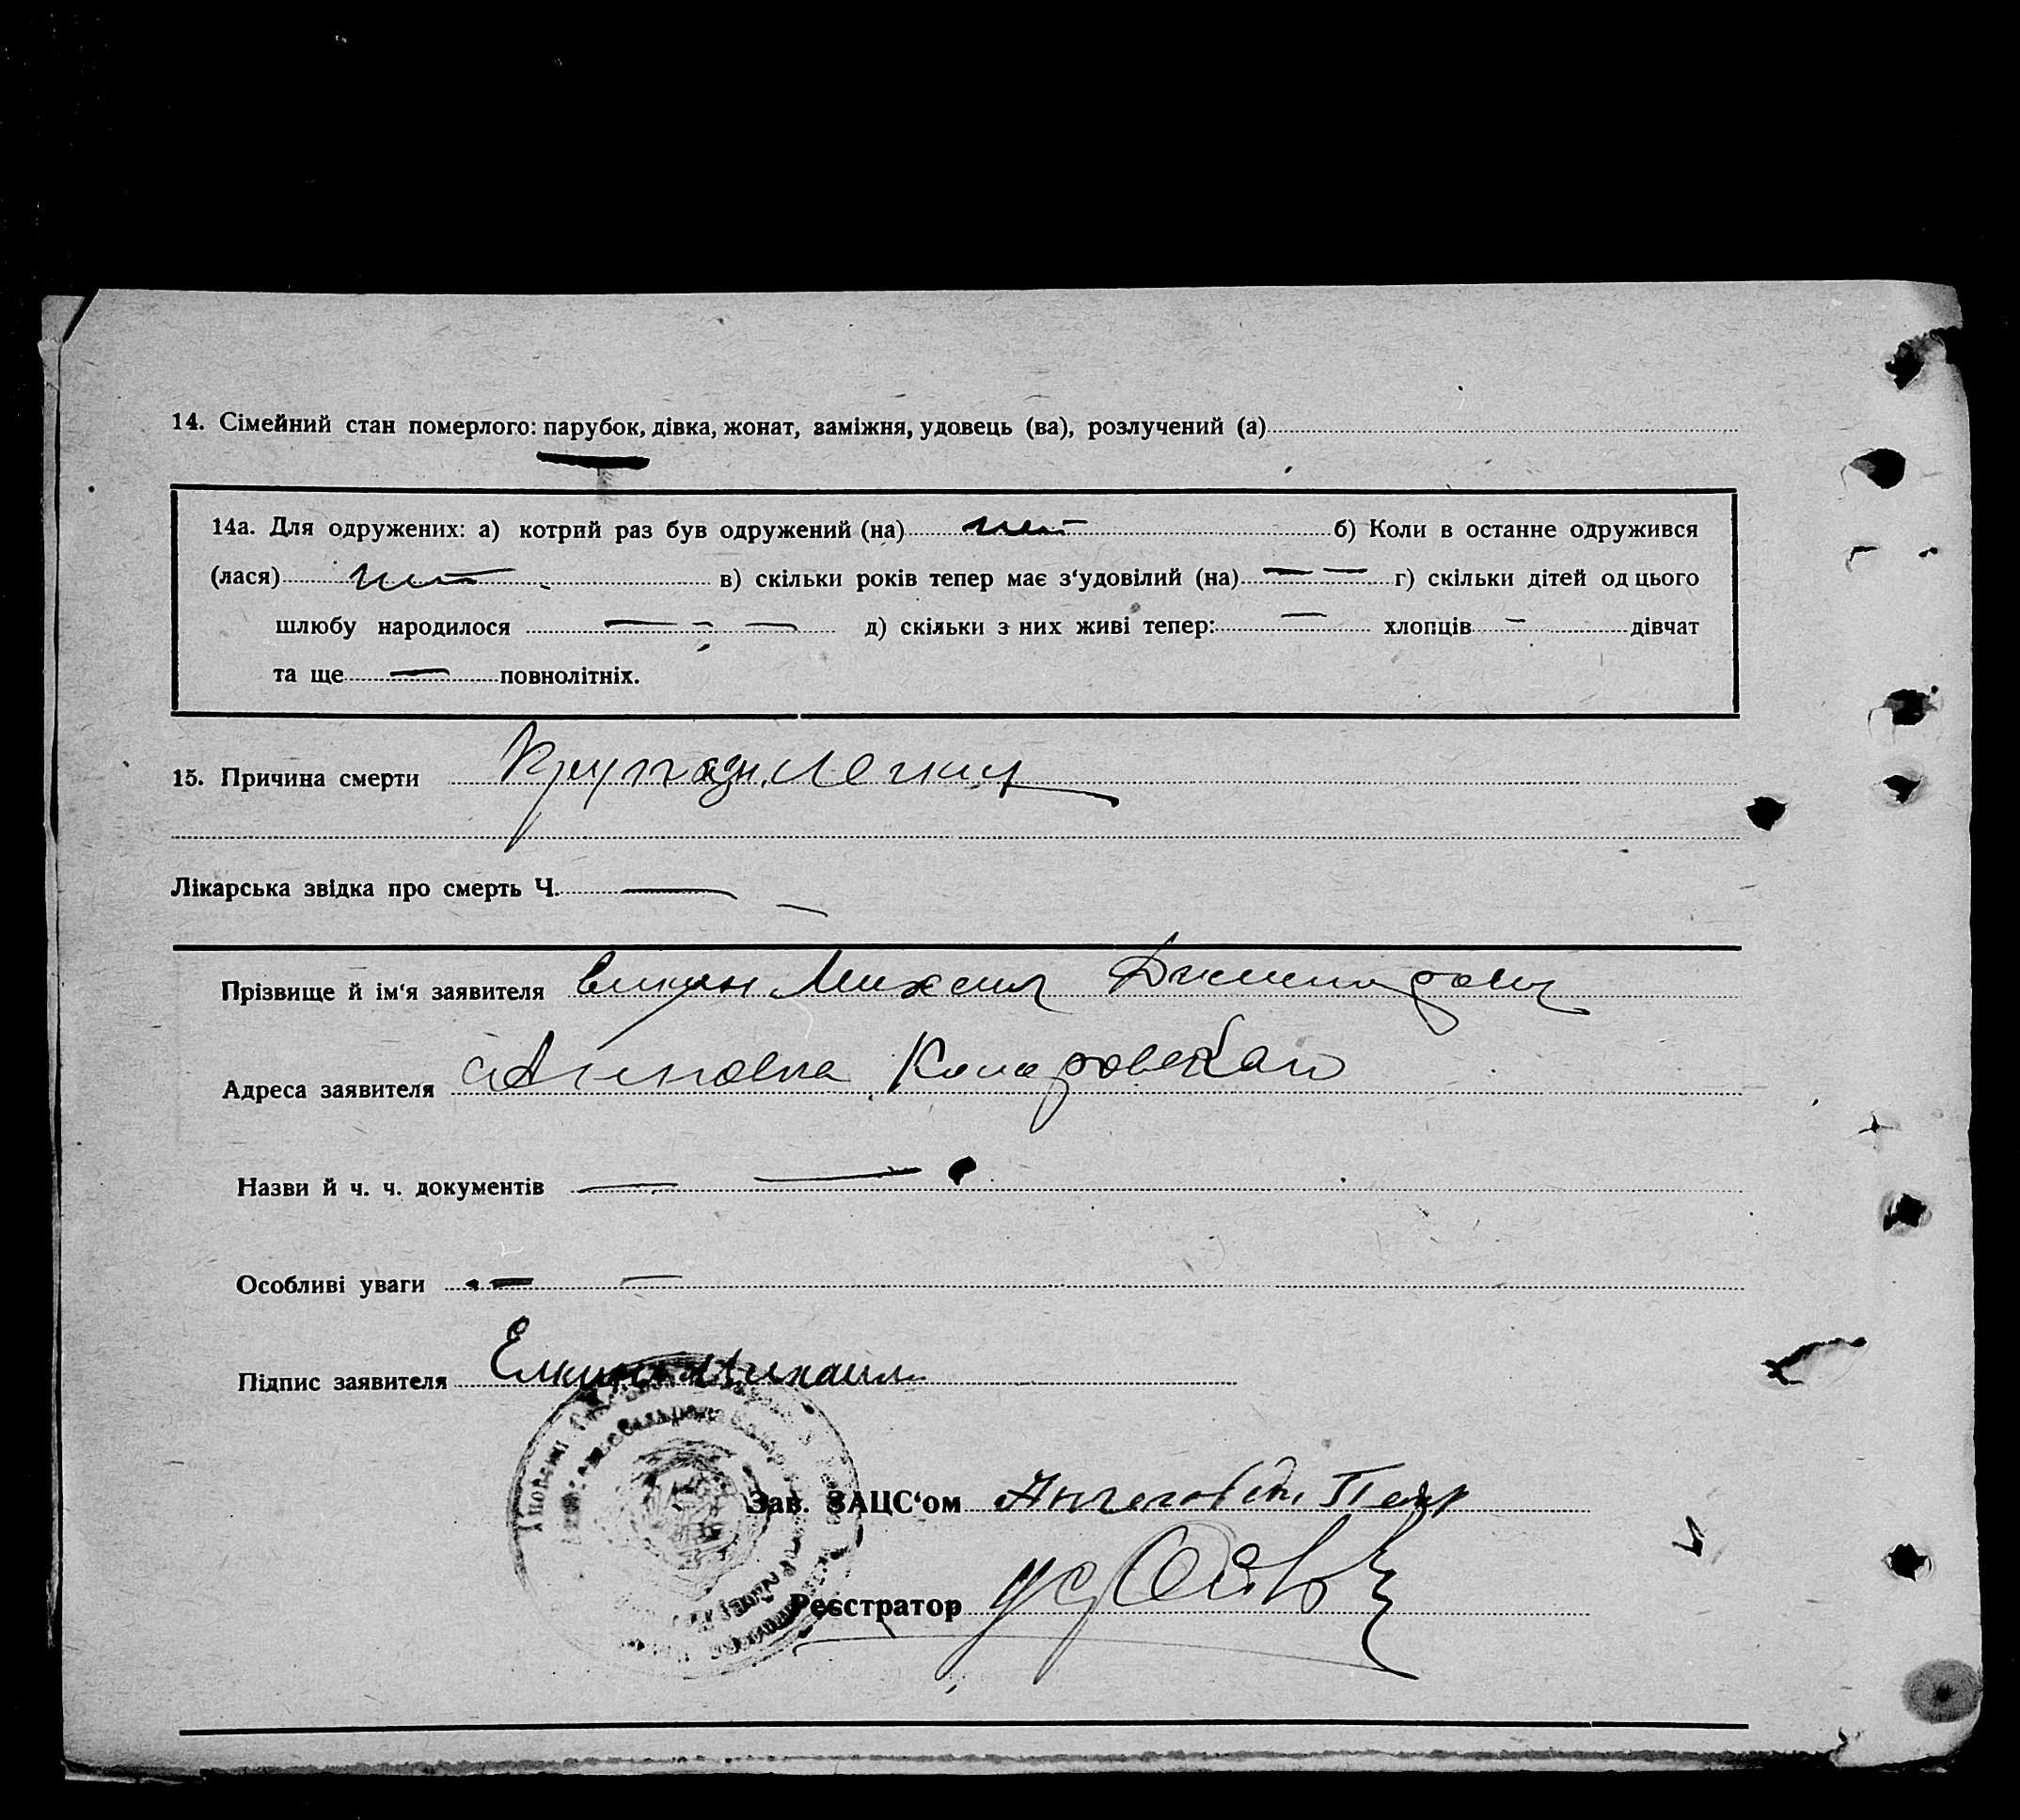 14. Сімейний стан померлого: парубок, дівка, жонат, заміжня, удовець (ва), розлучений (а)
14а. Для одружених: а) котрий раз був одружений (на) нет б) Коли в останне одружився
(лася) нет в) скільки років тепер має з‘удовілий (на) — — г) скільки дітей од цього
шлюбу народилося — – — д) скільки з них живі тепер: — хлопців – дівчат
та ще — повнолітніх.
15. Причина смерти легких
Лікарська звідка про смерть Ч. — —
Прізвище й ім‘я заявителя Елкин Михаил
Адреса заявителя
Назви й ч. ч. документів — —
Особливі уваги — —
Підпис заявителя Елкин Михаил
Зав. ЗАЦС‘ом
Реєстратор